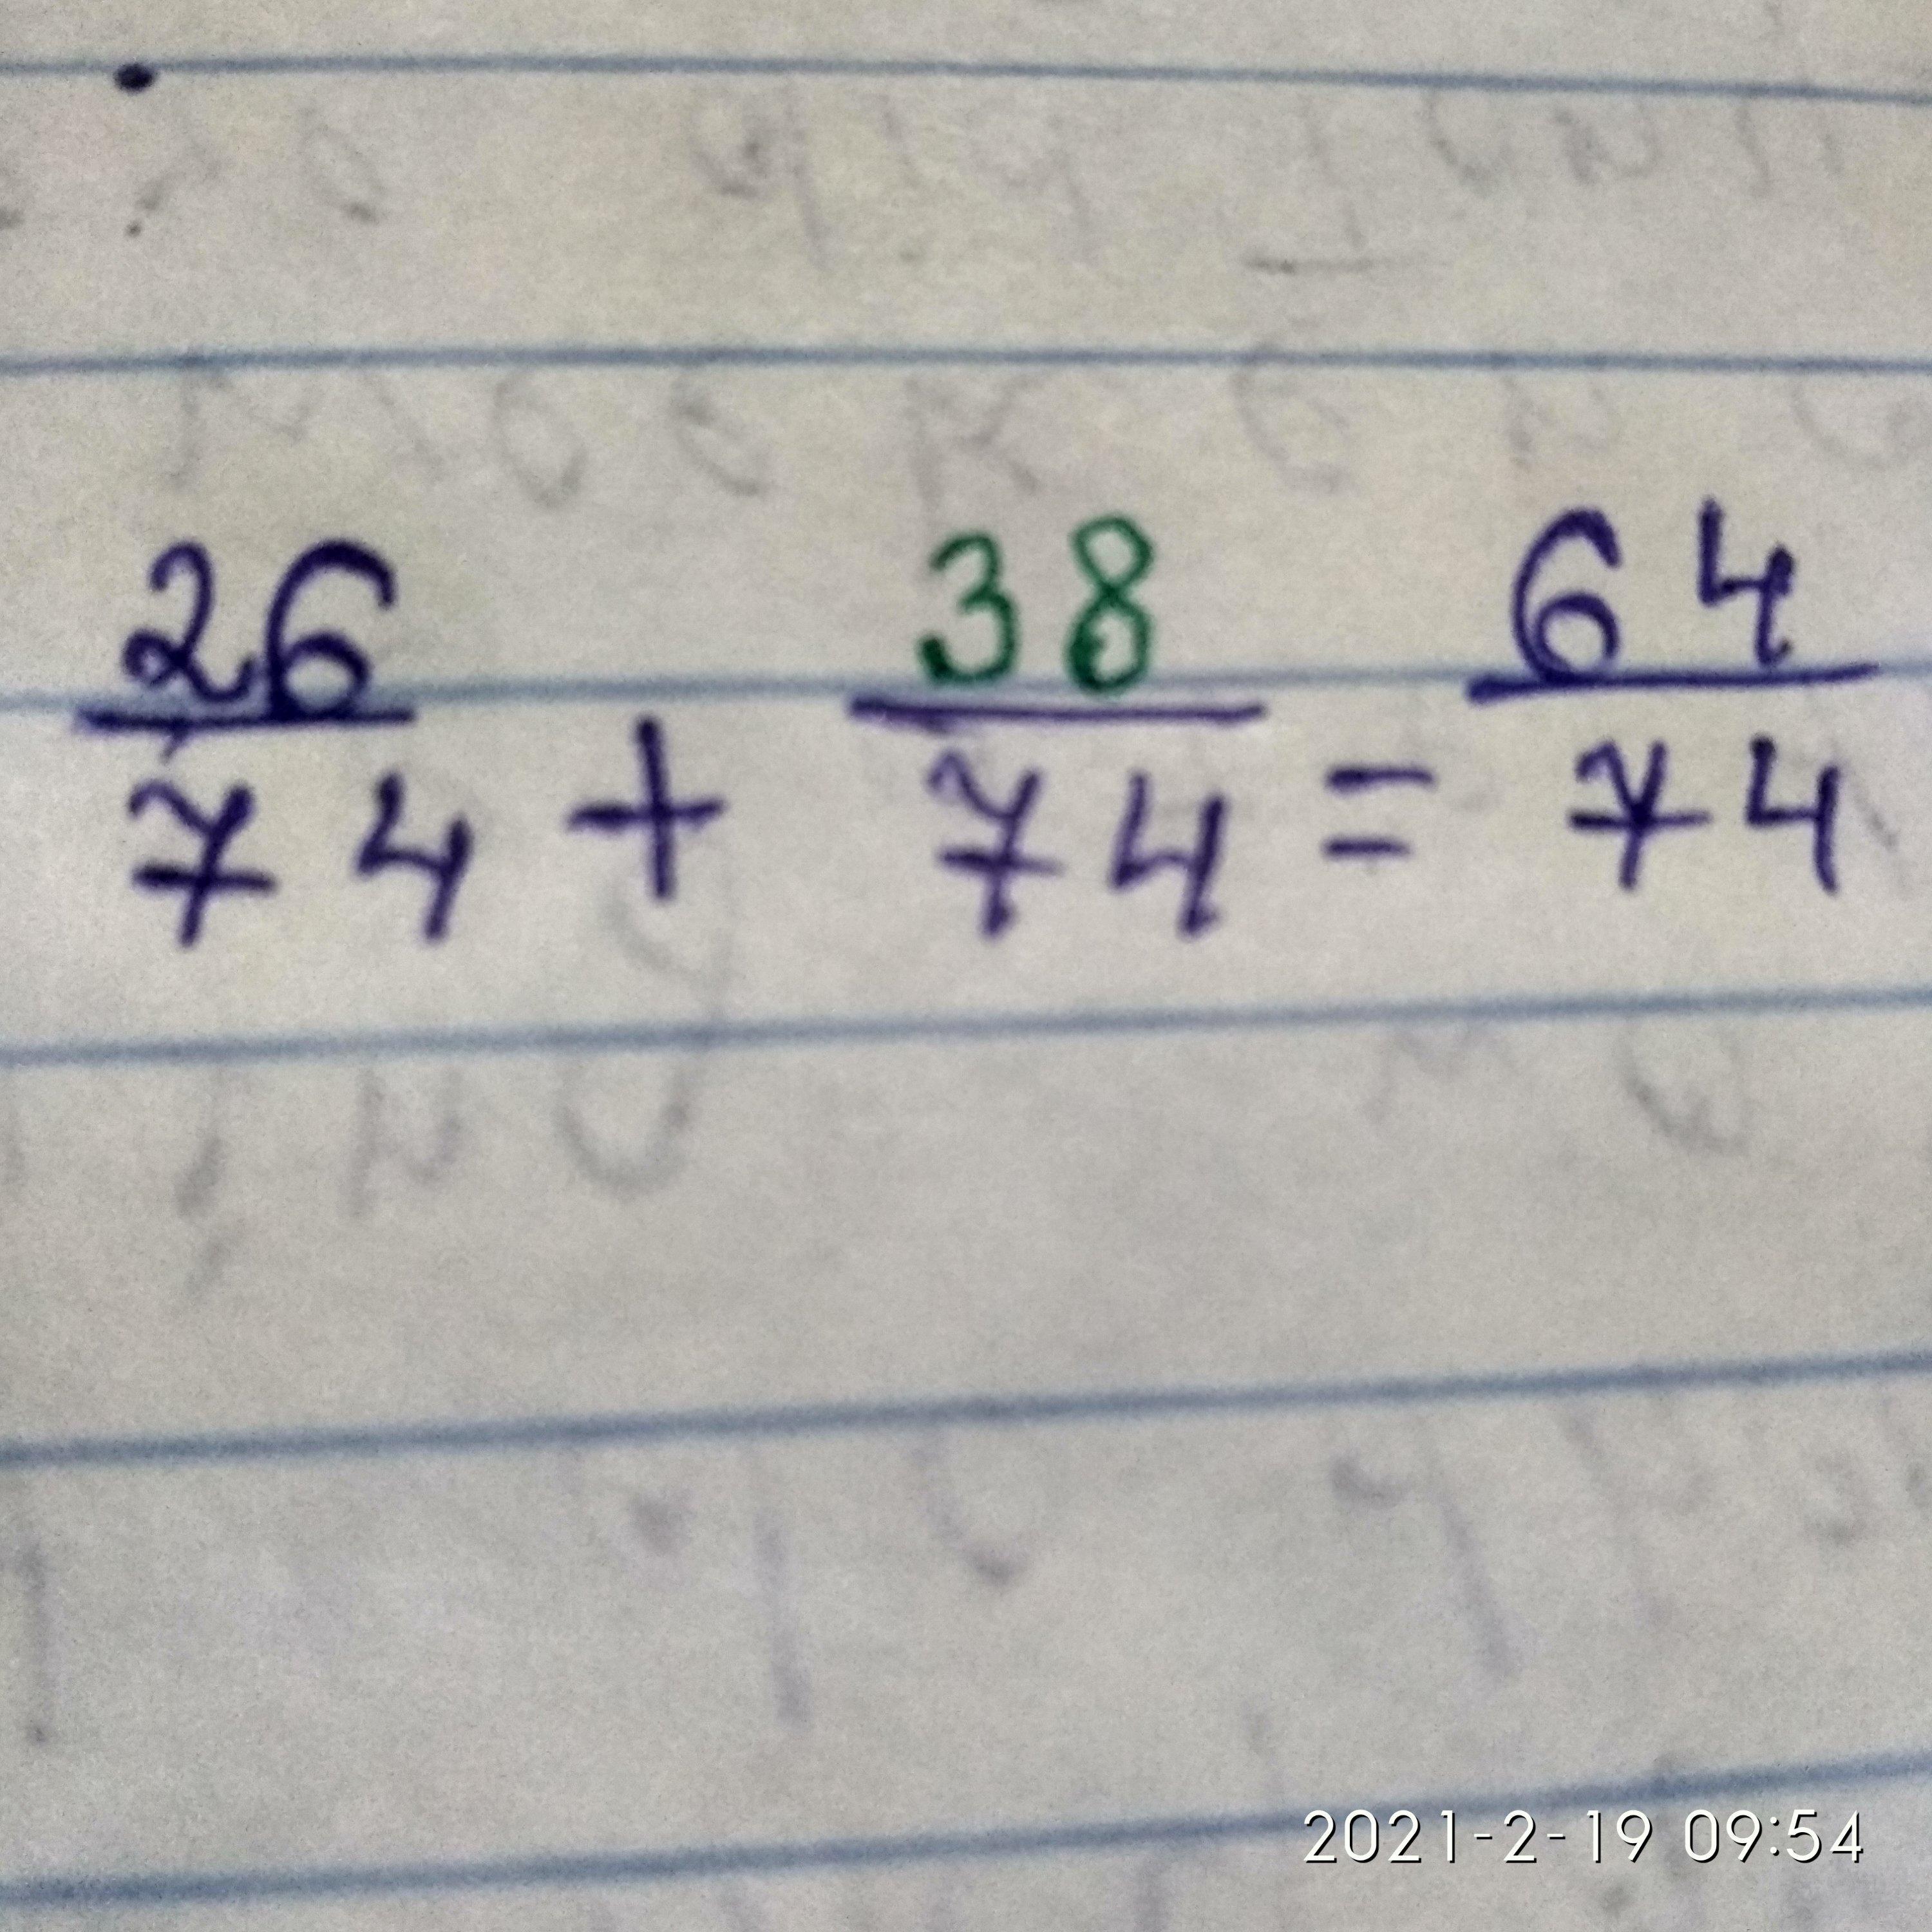 26/74 + 38/74 = 64/74
2021-2-19 09:54